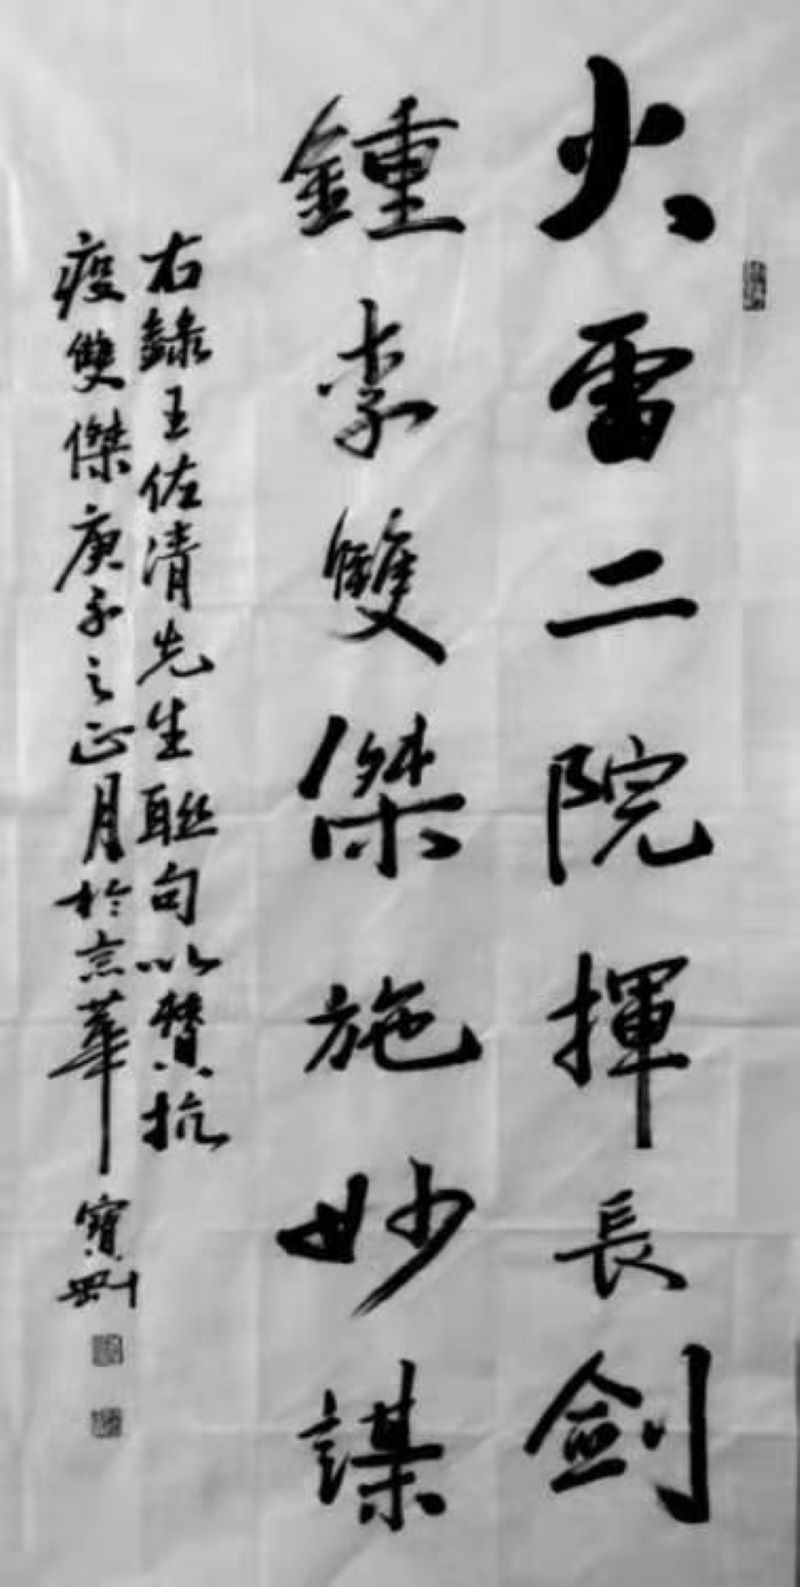 火雷二院揮長劍
鍾李雙傑施妙謀
右録王佐清先生聯句以贊抗
疫雙傑庚子之正月於京華 寶剛